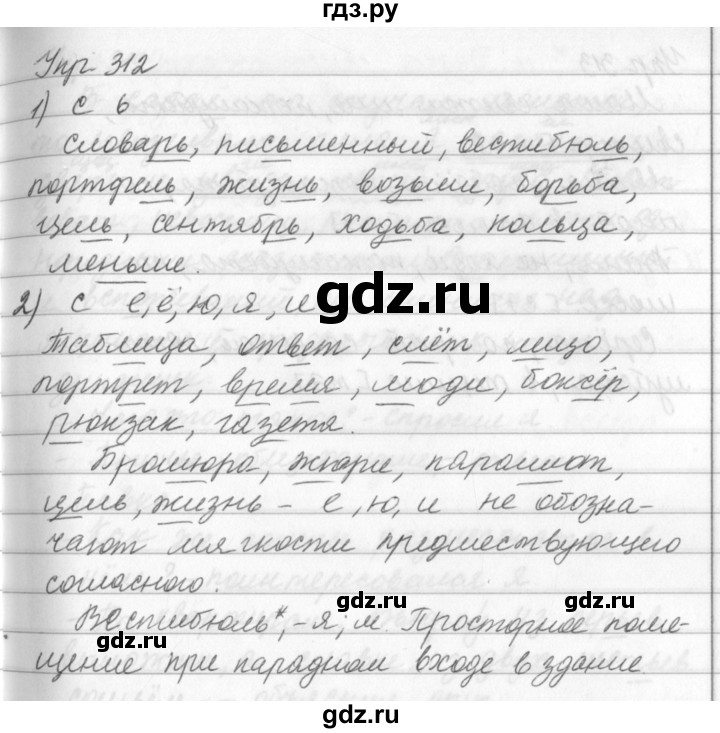 гдз.ру
Упр 312
1) с ь
словарь, письменный, вестибюль,
портфель, жизнь, возьми, борьба,
цель, сентябрь, ходьба, польза,
меньше.
2) с е, ё, ю, я, и
Таблица, ответ, слёт, лицо,
портрет, время, люди, боксёр,
рюкзак, газета.
Брошюра, жюри, парашют,
цель, жизнь – е, ю, и не обозна-
чают мягкости предшествующего
согласного.
gdz.ru gdz.ru
Вестибюль*, -я; м Просторное поме-
щение при парадном входе в здание
gdz.ru